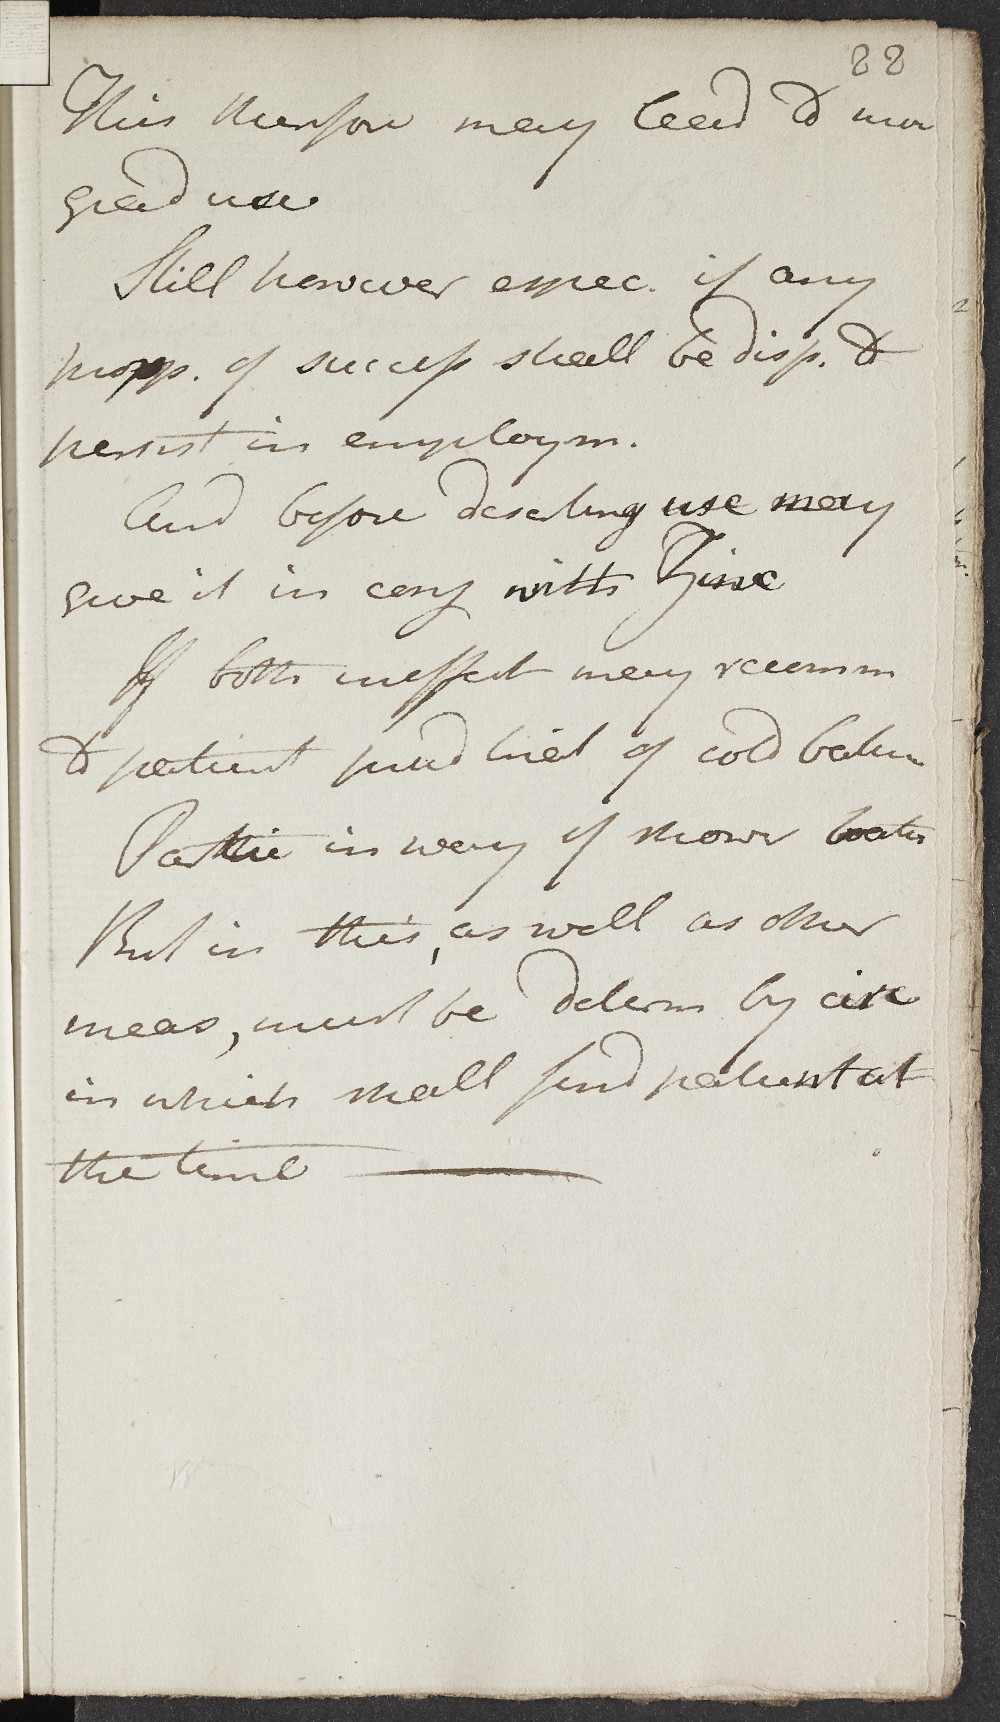 88
This therefore may lead to mor
grad use
Still however espec. if any
prosp. of success shall be disp. to
persist in employm.
And before deserting use may
give it in conj with Zinc
If both ineffect may recomm
to patient trial of cold bath
in way of shower bath
But in this, as well as other
meas, must be determ by circ
in which shall find patient at
the time